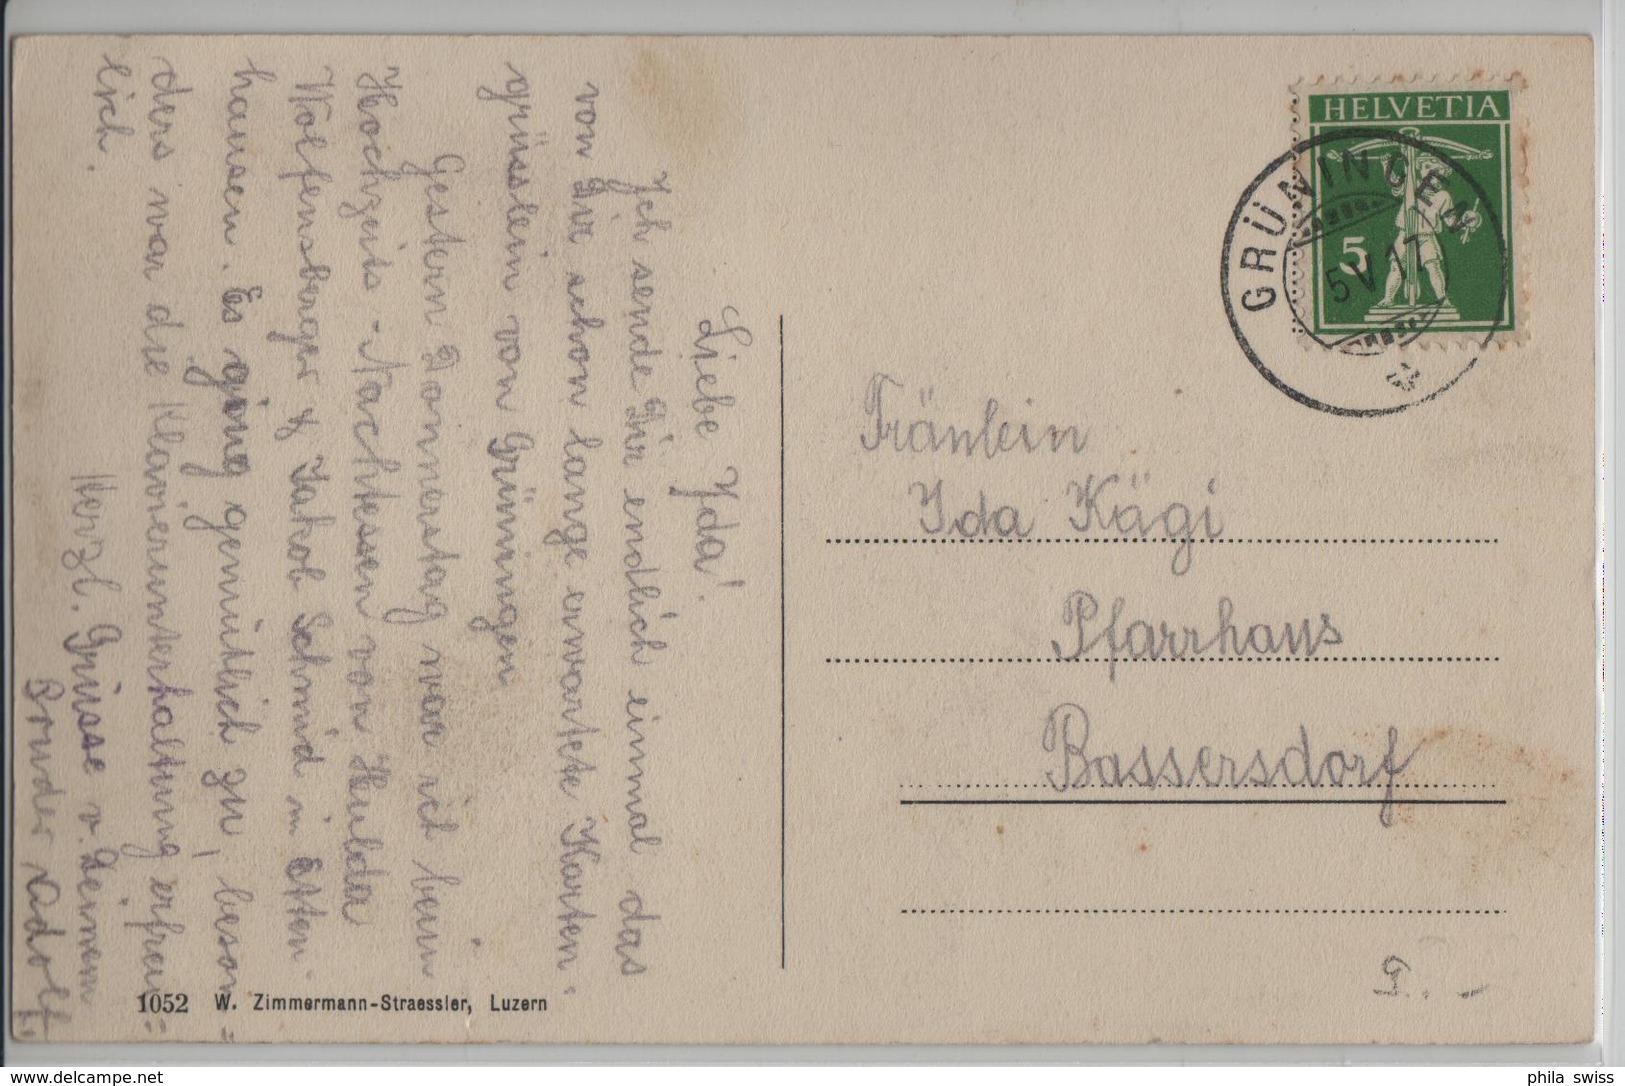 Liebe Ida!
Ich sende Dir endlich einmal das
von Dir schon lange erwartete Karten-
grüsslein von Grüningen
Gestern Donnerstag war ich beim
Hochzeits-Nachtessen von Hulda
Wolfensberger & Jakob Schmid in Etten-
hausen. Es ging gemütlich zu, beson=
ders war die Klavierunterhaltung erfreu=
lich.
Herzl. Grüsse v. Deinem
Bruder Adolf.
1052 W. Zimmermann-Straessler, Luzern
HELVETIA
5
GRÜNINGEN
5 V 17
Fräulein
Ida Kägi
Pfarrhaus
Bassersdorf
phila swiss